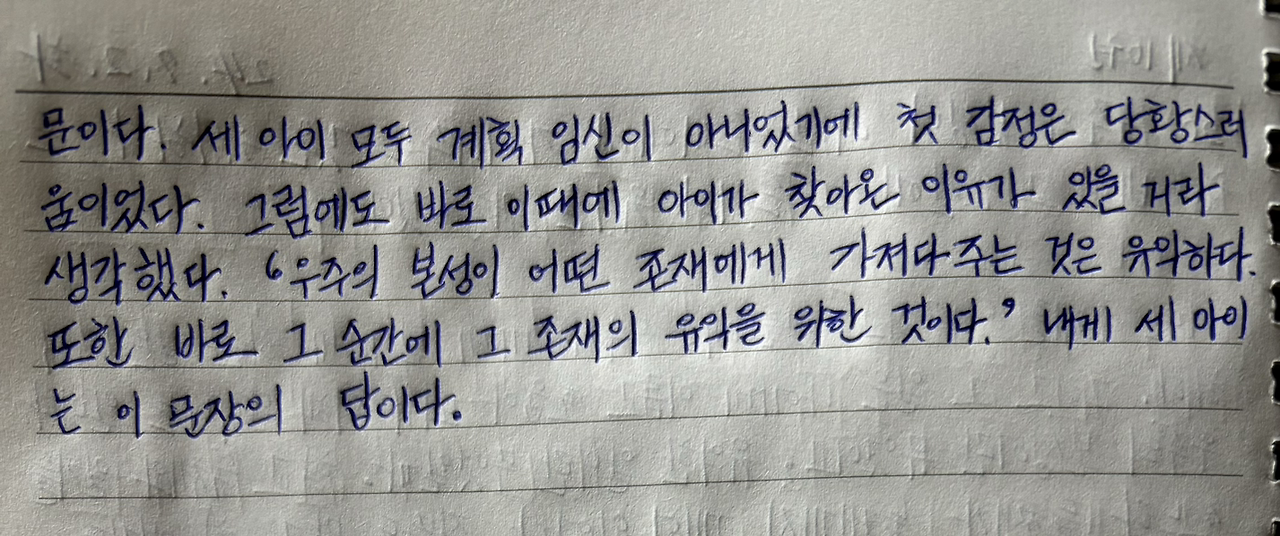 문이다. 세 아이 모두 계획 임신이 아니었기에 첫 감정은 당황스러
움이었다. 그럼에도 바로 이때에 아이가 찾아온 이유가 있을 거라
생각했다. ‘우주의 본성이 어떤 존재에게 가져다주는 것은 유익하다.
또한 바로 그 순간에 그 존재의 유익을 위한 것이다.’ 내게 세 아이
는 이 문장의 답이다.